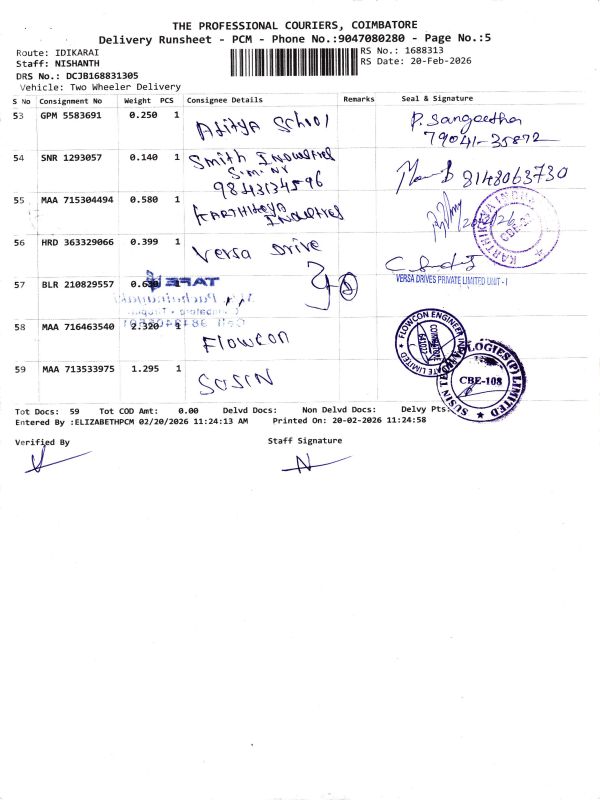 THE PROFESSIONAL COURIERS, COIMBATORE
Delivery Runsheet - PCM - Phone No.:9047080280 - Page No.:5
Route: IDIKARAI
RS No.: 1688313
Staff: NISHANTH
RS Date: 20-Feb-2026
DRS No.: DCJB168831305
Vehicle: Two Wheeler Delivery
S No Consignment No Weight PCS Consignee Details Remarks Seal & Signature
53 GPM 5583691 0.250 1 Aditya School P. Sangeetha
79041-35872
54 SNR 1293057 0.140 1 Smith Industries 8148063730
9843134596
55 MAA 715304494 0.580 1 Karthikeya Industries
KARTHIKEYA
56 HRD 363329066 0.399 1 Versa Drive
VERSA DRIVES PRIVATE LIMITED UNIT - I
57 BLR 210829557 0.630 TAFE
58 MAA 716463540 2.320 1 Flowcon
FLOWCON ENGINEER
COIMBATORE
59 MAA 713533975 1.295 1 SUSIN
SUSIN TECHNOLOGIES(P)LIMITED
CBE-108
Tot Docs: 59 Tot COD Amt: 0.00 Delvd Docs: Non Delvd Docs: Delvy Pts:
Entered By :ELIZABETHPCM 02/20/2026 11:24:13 AM Printed On: 20-02-2026 11:24:58
Verified By Staff Signature